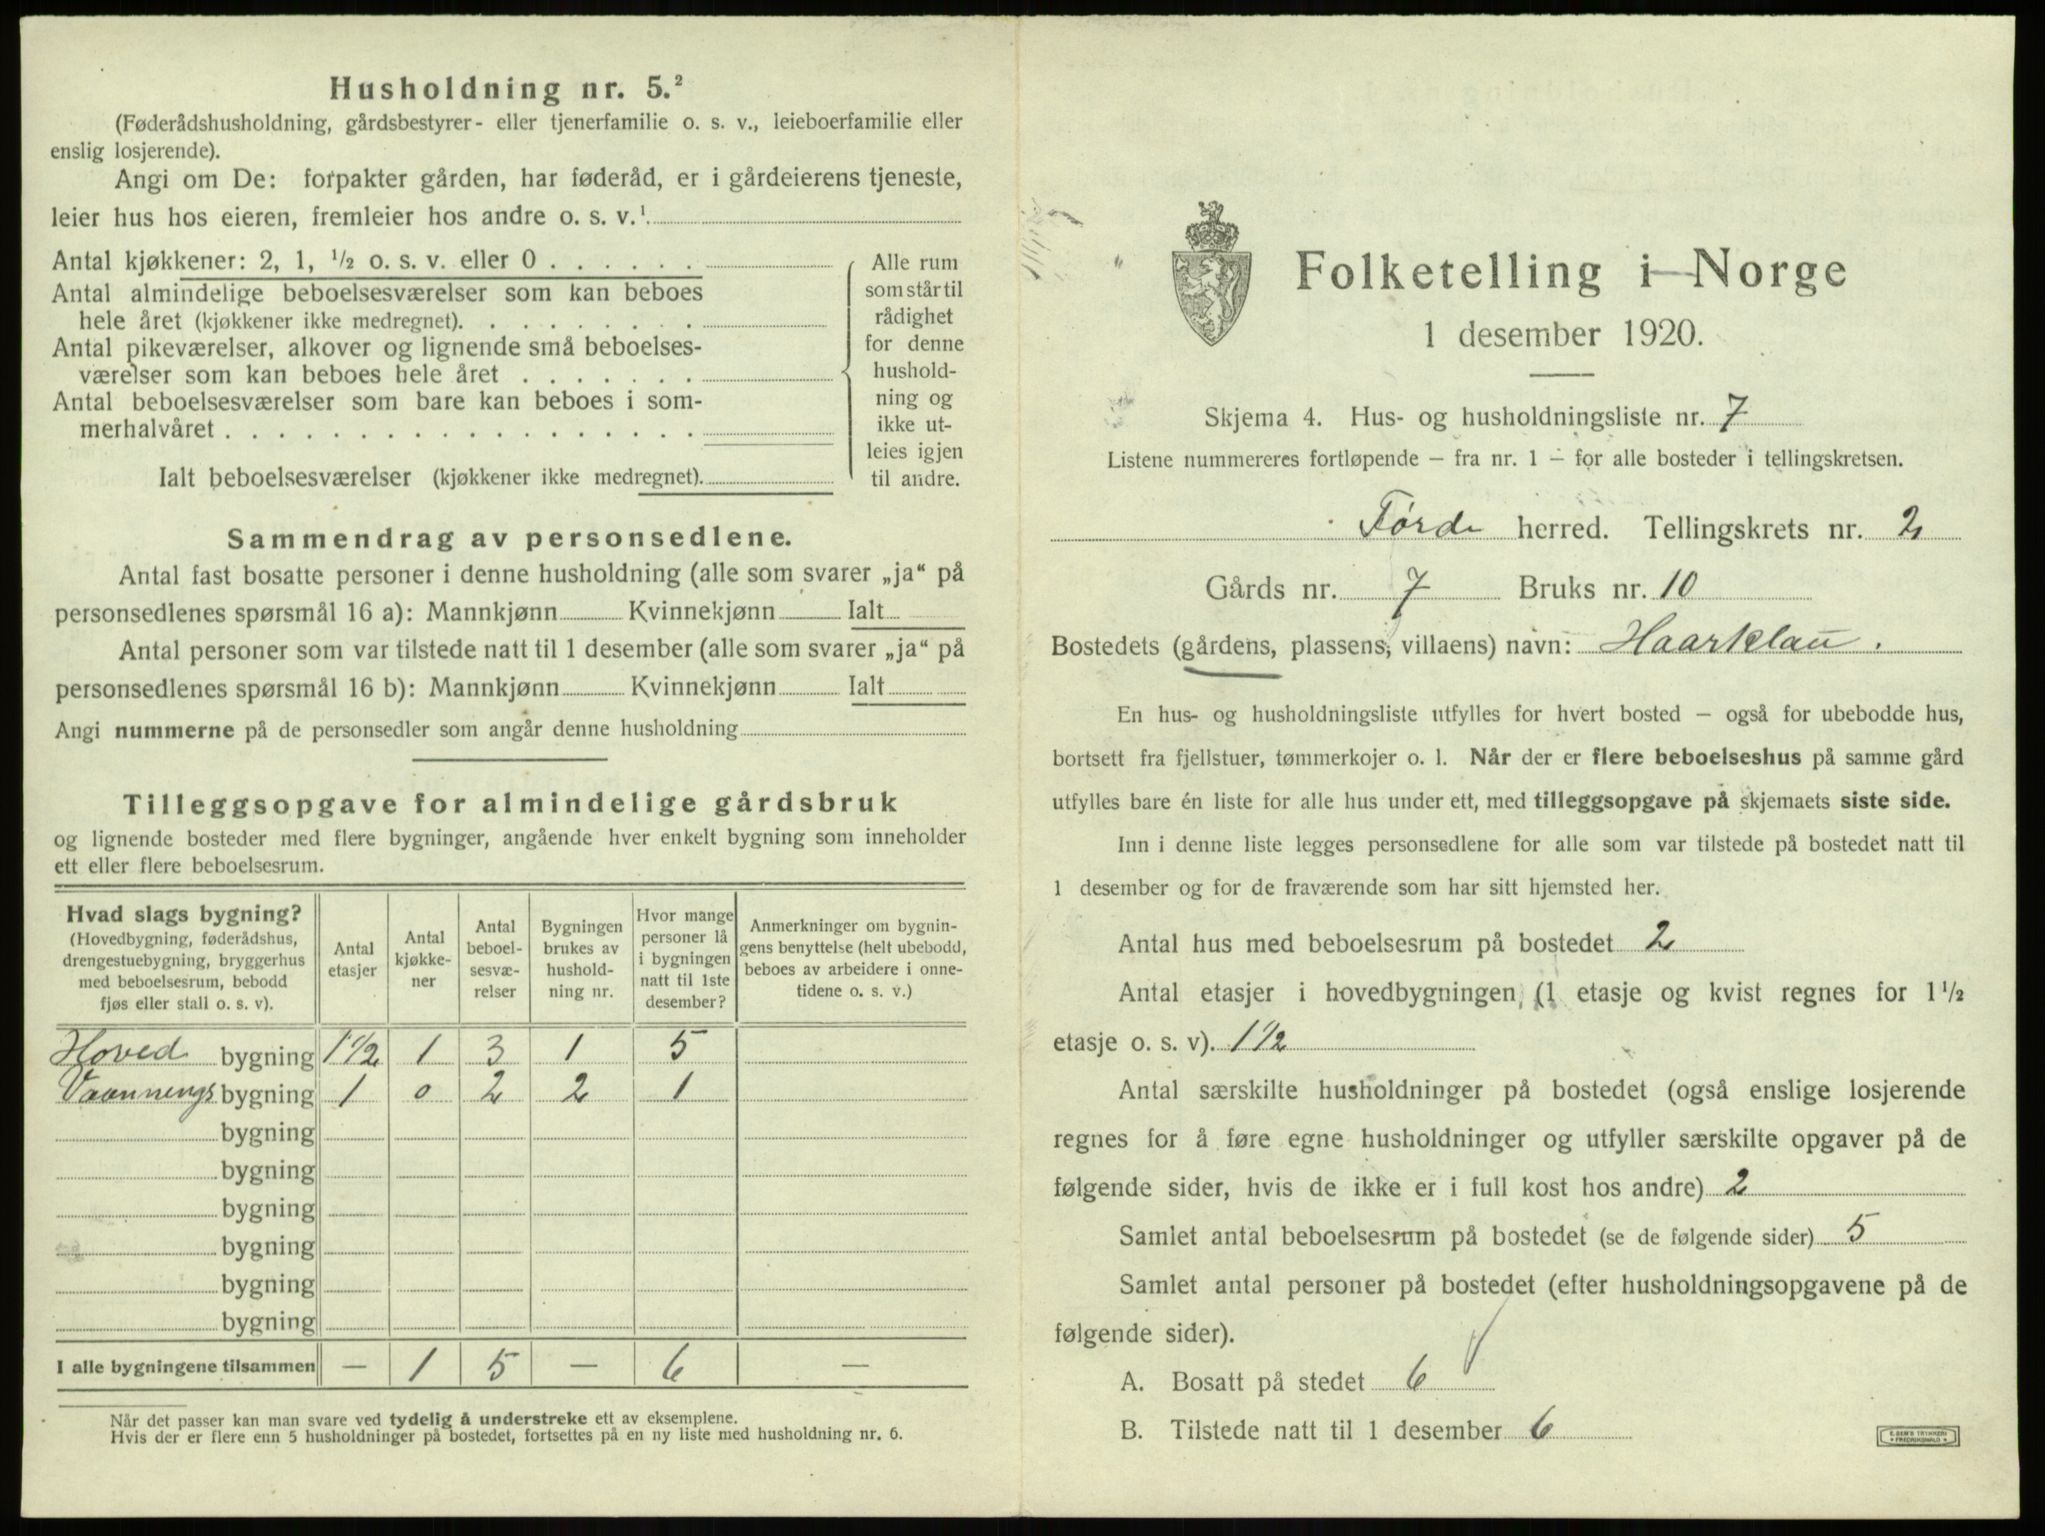 Husholdning nr. 5.²
(Føderådshusholdning, gårdsbestyrer- eller tjenerfamilie o. s. v., leieboerfamilie eller
enslig losjerende).
Angi om De: forpakter gården, har føderåd, er i gårdeierens tjeneste,
leier hus hos eieren, fremleier hos andre o. s. v.¹
Antal kjøkkener: 2, 1, ½ o. s. v. eller 0
Antal almindelige beboelsesværelser som kan beboes
hele året (kjøkkener ikke medregnet).
Antal pikeværelser, alkover og lignende små beboelses-
værelser som kan beboes hele året
Antal beboelsesværelser som bare kan beboes i som-
merhalvåret
Ialt beboelsesværelser (kjøkkener ikke medregnet).
Alle rum
som står til
rådighet
for denne
hushold-
ning og
ikke ut-
leies igjen
til andre.
Sammendrag av personsedlene.
Antal fast bosatte personer i denne husholdning (alle som svarer „ja“ på
personsedlenes spørsmål 16 a): Mannkjønn Kvinnekjønn Ialt
Antal personer som var tilstede natt til 1 desember (alle som svarer „ja“ på
personsedlenes spørsmål 16 b): Mannkjønn Kvinnekjønn Ialt
Angi nummerne på de personsedler som angår denne husholdning
Tilleggsopgave for almindelige gårdsbruk
og lignende bosteder med flere bygninger, angående hver enkelt bygning som inneholder
ett eller flere beboelsesrum.
Hvad slags bygning?
(Hovedbygning, føderådshus,
drengestuebygning, bryggerhus
med beboelsesrum, bebodd
fjøs eller stall o. s. v).
Antal
etasjer
Antal
kjøkke-
ner
Antal
beboel-
sesvæ-
relser
Bygningen
brukes av
hushold-
ning nr.
Hvor mange
personer lå
i bygningen
natt til 1ste
desember?
Anmerkninger om bygnin-
gens benyttelse (helt ubebodd,
beboes av arbeidere i onne-
tidene o. s. v.)
Hoved bygning 1½ 1 3 1 5
Vaannings bygning 1 0 2 2 1
bygning
bygning
bygning
bygning
bygning
bygning
I alle bygningene tilsammen — 1 5 — 6 —
Når det passer kan man svare ved tydelig å understreke ett av eksemplene.
Hvis der er flere enn 5 husholdninger på bostedet, fortsettes på en ny liste med husholdning nr. 6.
Folketelling i Norge
1 desember 1920.
Skjema 4. Hus- og husholdningsliste nr. 7
Listene nummereres fortløpende – fra nr. 1 – for alle bosteder i tellingskretsen.
Førde herred. Tellingskrets nr. 2
Gårds nr. 7 Bruks nr. 10
Bostedets (gårdens, plassens, villaens) navn: Haarklau.
En hus- og husholdningsliste utfylles for hvert bosted – også for ubebodde hus,
bortsett fra fjellstuer, tømmerkojer o. l. Når der er flere beboelseshus på samme gård
utfylles bare én liste for alle hus under ett, med tilleggsopgave på skjemaets siste side.
Inn i denne liste legges personsedlene for alle som var tilstede på bostedet natt til
1 desember og for de fraværende som har sitt hjemsted her.
Antal hus med beboelsesrum på bostedet 2
Antal etasjer i hovedbygningen (1 etasje og kvist regnes for 1½
etasje o. s. v). 1½
Antal særskilte husholdninger på bostedet (også enslige losjerende
regnes for å føre egne husholdninger og utfyller særskilte opgaver på de
følgende sider, hvis de ikke er i full kost hos andre) 2
Samlet antal beboelsesrum på bostedet (se de følgende sider) 5
Samlet antal personer på bostedet (efter husholdningsopgavene på de
følgende sider).
A. Bosatt på stedet 6
B. Tilstede natt til 1 desember 6